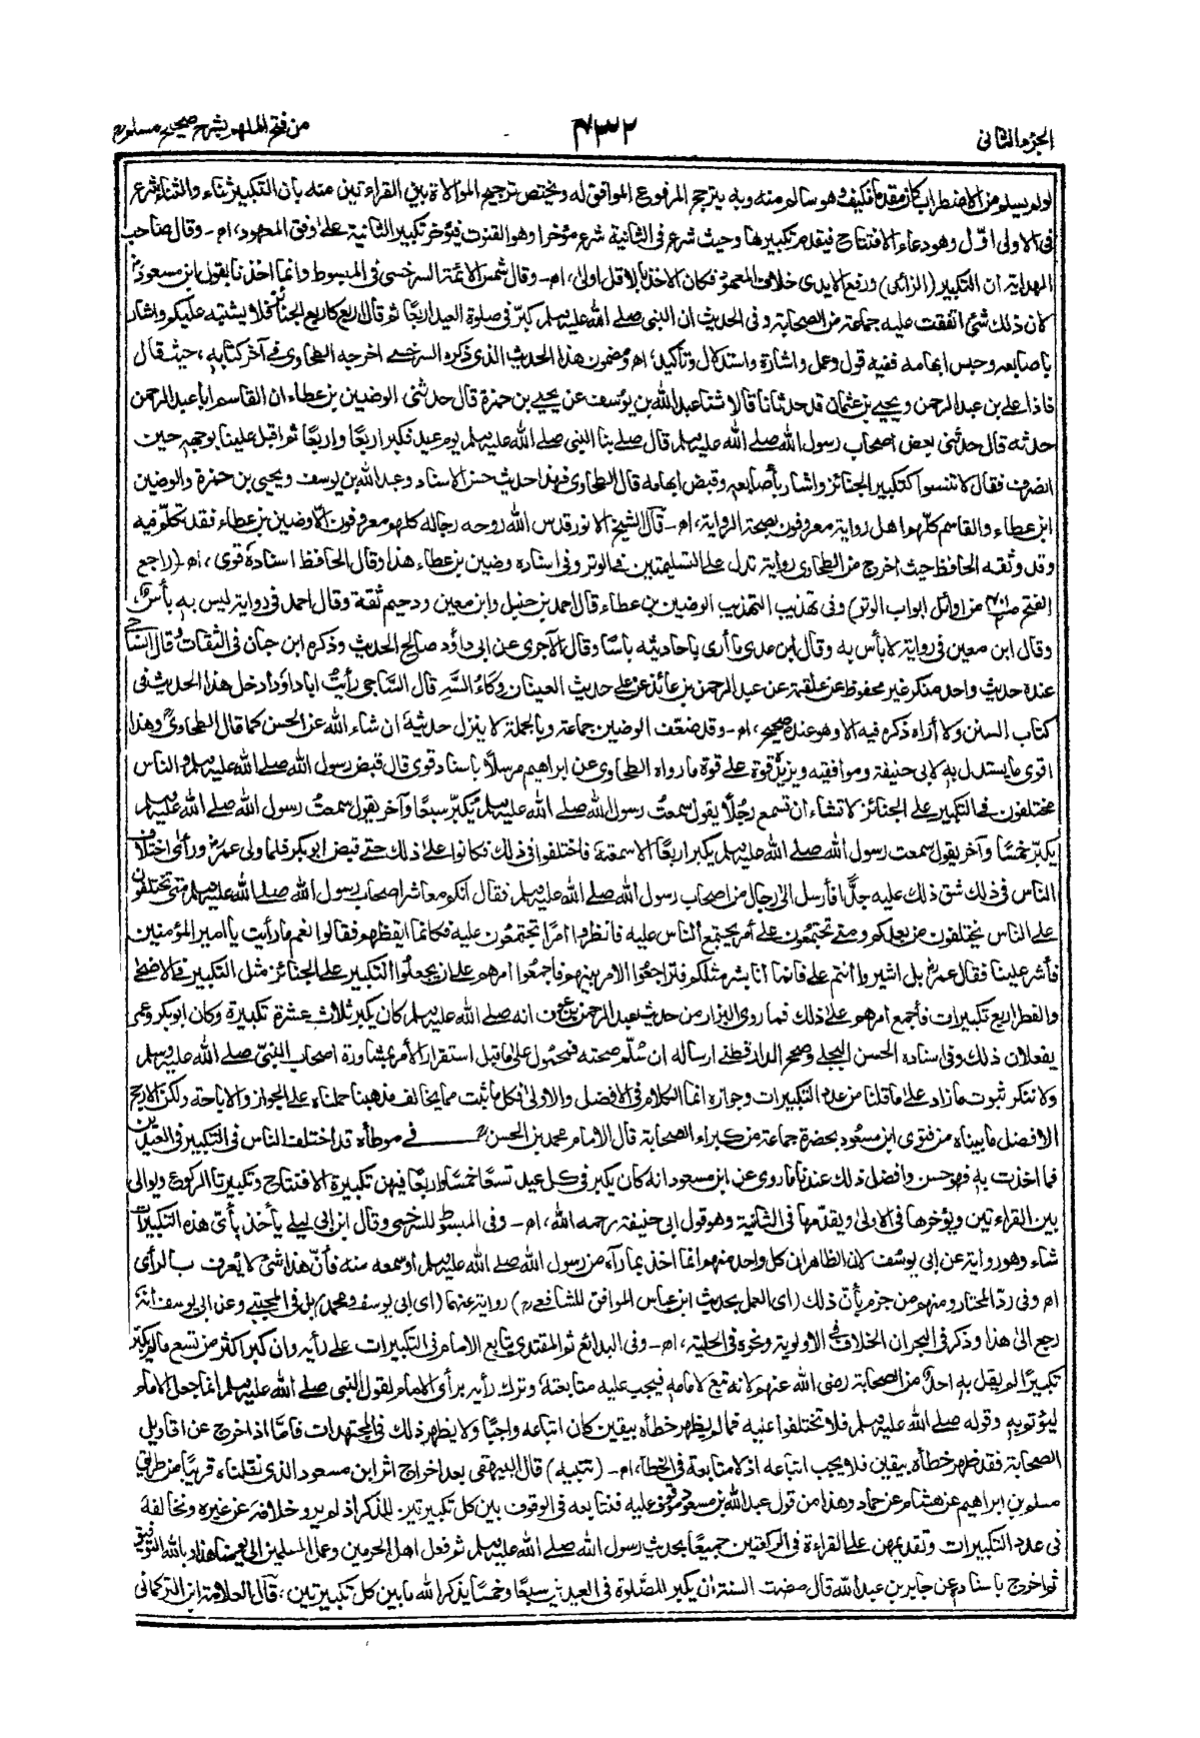 الجزء الثاني
٤٣٢
من فتح الملهم بشرح صحيح مسلم
لو لم يسلم من الاضطراب كان مقدما فكيف وهو سالم منه وبه يترجح المرفوع الموافق له ويختص ترجيح الموالاة بين القراءتين منه بان التكبير ثناء والثناء شرع
في الاولى اول وهو دعاء الافتتاح فيقدم تكبيرها وحيث شرع في الثانية شرع مؤخرا وهو القنوت فيؤخر تكبير الثانية على وفق المعهود، اه - وقال صاحب
الهداية ان التكبير (الزائد) ورفع الايدى خلاف المعهود فكان الاخذ بالاقل اولى، اه - وقال شمس الائمة السرخسى فى المبسوط وانما اخذنا بقول ابن مسعود
كان ذلك شئ اتفقت عليه جماعة من الصحابة وفى الحديث ان النبى صلى الله عليه وسلم كبر فى صلوة العيد اربعًا ثم قال اربع كاربع الجنائز فلا يشتبه عليكم واشار
باصابعه وحبس ابهامه ففيه قول وعمل واشارة واستدلال وتأكيد، اه ومضمون هذا الحديث الذى ذكره السرخسى اخرجه الطحاوى فى آخر كتابه، حيث قال
فاذا على بن عبد الرحمن ويحيى بن عثمان قد حدثانا قالا ثنا عبد الله بن يوسف عن يحيى بن حمزة قال حدثنى الوضين بن عطاء ان القاسم ابا عبد الرحمن
حدثه قال حدثنى بعض اصحاب رسول الله صلى الله عليه وسلم قال صلى بنا النبى صلى الله عليه وسلم يوم عيد فكبر اربعًا واربعًا ثم اقبل علينا بوجهه حين
انصرف فقال لا تنسوا كتكبير الجنائز واشار بأصابعه وقبض ابهامه قال الطحاوى فهذا حديث حسن الاسناد وعبد الله بن يوسف ويحيى بن حمزة والوضين
ابن عطاء والقاسم كلهم اهل رواية معروفون بصحة الرواية، اه - قال الشيخ الانور قدس الله روحه رجاله كلهم معروفون الا وضين بن عطاء فقد تكلم فيه
وقد وثقه الحافظ حيث اخرج من الطحاوى رواية تدل على التسليمتين فى الوتر وفى اسناده وضين بن عطاء هذا وقال الحافظ اسناده قوى، اه - (راجع
الفتح من اوائل ابواب الوتر) وفى تهذيب التهذيب الوضين بن عطاء قال احمد بن حنبل وابن معين ودحيم ثقة وقال احمد فى رواية ليس به بأس
وقال ابن معين فى رواية لا بأس به وقال ابن عدى ما أرى باحاديثه باسًا وقال الآجرى عن ابى داؤد صالح الحديث وذكره ابن حبان فى الثقات قال الساجى
عنده حديث واحد منكر غير محفوظ عن علقمة عن عبد الرحمن بن عائذ عن على حديث العينان وكاء السه قال الساجى رأيت ابا داؤد ادخل هذا الحديث فى
كتاب السنن ولا أراه ذكره فيه الا وهو عنده صحيح، اه - وقد ضعف الوضين جماعة وبالجملة لا ينزل حديثه ان شاء الله عن الحسن كما قال الطحاوى وهذا
اقوى ما يستدل به لابى حنيفة وموافقيه ويزيده قوة على قوة ما رواه الطحاوى عن ابراهيم مرسلًا باسناد قوى قال قبض رسول الله صلى الله عليه وسلم والناس
مختلفون فى التكبير على الجنائز لا تشاء ان تسمع رجلًا يقول سمعت رسول الله صلى الله عليه وسلم يكبر سبعًا وآخر يقول سمعت رسول الله صلى الله عليه وسلم
يكبر خمسًا وآخر يقول سمعت رسول الله صلى الله عليه وسلم يكبر اربعًا الا سمعته فاختلفوا فى ذلك فكانوا على ذلك حتى قبض ابو بكر فلما ولى عمر ورأى اختلاف
الناس فى ذلك شق ذلك عليه جدًّا فأرسل الى رجال من اصحاب رسول الله صلى الله عليه وسلم فقال انكم معاشر اصحاب رسول الله صلى الله عليه وسلم متى تختلفون
على الناس يختلفون من بعدكم ومتى تجتمعون على أمر يجتمع الناس عليه فانظروا امرًا تجتمعون عليه فكانما ايقظهم فقالوا نعم ما رأيت يا امير المؤمنين
فأشر علينا فقال عمر بل اشيروا انتم على فانما انا بشر مثلكم فتراجعوا الامر بينهم فاجمعوا امرهم على ان يجعلوا التكبير على الجنائز مثل التكبير فى الاضحى
والفطر اربع تكبيرات فأجمع امرهم على ذلك فما روى البزار من حديث عبد الرحمن بن عوف انه صلى الله عليه وسلم كان يكبر ثلاث عشرة تكبيرة وكان ابو بكر وعمر
يفعلان ذلك وفى اسناده الحسن البجلى وصحح الدارقطنى ارساله ان سُلّم صحته فمحمول على ما قبل استقرار الأمر بمشاورة اصحاب النبى صلى الله عليه وسلم
ولا ننكر ثبوت ما زاد على ما قلنا من عدد التكبيرات وجوازه انما الكلام فى الافضل والاولى فكل ما ثبت مما يخالف مذهبنا حملناه على الجواز والاباحة ولكن الارجح
الافضل ما بيناه من فتوى ابن مسعود بحضرة جماعة من كبراء الصحابة قال الامام محمد بن الحسن فى موطاه قد اختلف الناس فى التكبير فى العيدين
فما اخذت به فهو حسن وافضل ذلك عندنا ما روى عن ابن مسعود انه كان يكبر فى كل عيد تسعًا خمسًا واربعًا فيهن تكبيرة الافتتاح وتكبيرتا الركوع ويوالى
بين القراءتين ويؤخرها فى الاولى ويقدمها فى الثانية وهو قول ابى حنيفة رحمه الله، اه - وفى المبسوط للسرخسى وقال ابن ابى ليلى يأخذ بأى هذه التكبيرات
شاء وهو رواية عن ابى يوسف لان الظاهر ان كل واحد منهم انما اخذ بما رآه من رسول الله صلى الله عليه وسلم او سمعه منه فأن هذا شئ لا يعرف بالرأى
اه وفى رد المحتار ومنهم من جزم بأن ذلك (اى العمل بحديث ابن عباس الموافق للشافعى) رواية عنهما (اى ابى يوسف ومحمد) بل فى المجتبى وعن ابى يوسف انه
رجع الى هذا وذكر فى البحر ان الخلاف فى الاولوية ونحوه فى الحلية، اه - وفى البدائع ثم المقتدى يتابع الامام فى التكبيرات على رأيه وان كبر اكثر من تسع ما لم يكبر
تكبيرًا لم يقل به احد من الصحابة رضى الله عنهم لانه تبع لامامه فيجب عليه متابعته وترك رأيه برأى الامام لقول النبى صلى الله عليه وسلم انما جعل الامام
ليؤتم به وقوله صلى الله عليه وسلم فلا تختلفوا عليه فما لم يظهر خطأه بيقين كان اتباعه واجبًا ولا يظهر ذلك فى المجتهدات فاما اذا خرج عن اقاويل
الصحابة فقد ظهر خطأه بيقين فلا يجب اتباعه اذ لا متابعة فى الخطأ، اه - (تنبيه) قال البيهقى بعد اخراج اثر ابن مسعود الذى نقلناه قريبًا من طريق
مسلم بن ابراهيم عن هشام عن حماد وهذا من قول عبد الله بن مسعود موقوف عليه فنتابعه فى الوقوف بين كل تكبيرتين للذكر اذ لم يرو خلافه عن غيره ونخالفه
فى عدد التكبيرات وتقديمهن على القراءة فى الركعتين جميعًا بحديث رسول الله صلى الله عليه وسلم ثم فعل اهل الحرمين وعمل المسلمين الى يومنا هذا وبالله التوفيق
ثم اخرج باسناده عن جابر بن عبد الله قال مضت السنة ان يكبر للصلوة فى العيدين سبعًا وخمسًا يذكر الله ما بين كل تكبيرتين؛ قال العلامة ابن التركمانى